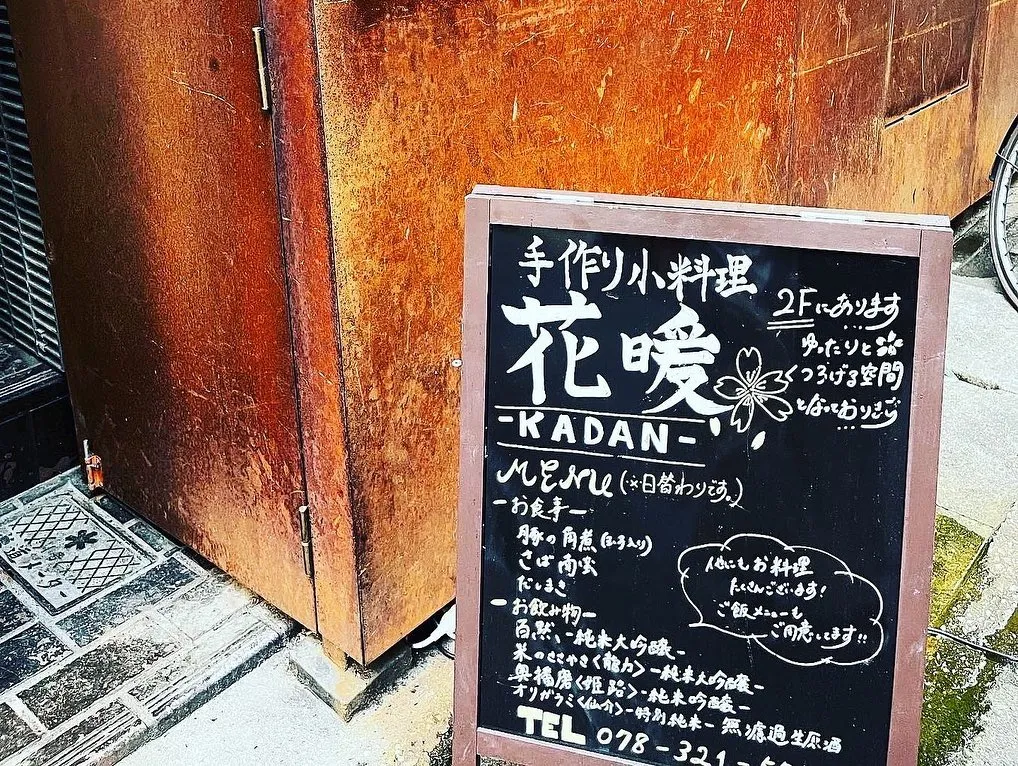 手作り小料理
花暖
-KADAN-
2Fにあります
ゆったりと
くつろげる空間
となっております
MENU (※日替わりです。)
ーお食事ー
豚の角煮
さば南蛮
だしまき
ーお飲み物ー
百黙 -純米大吟醸-
米のささやき〈龍力〉-純米大吟醸-
奥播磨〈姫路〉-純米吟醸-
オリガラミ〈仙介〉-特別純米-無濾過生原酒
他にもお料理
たくさんございます!
ご飯メニューも
ご用意してます!!
TEL 078-321-